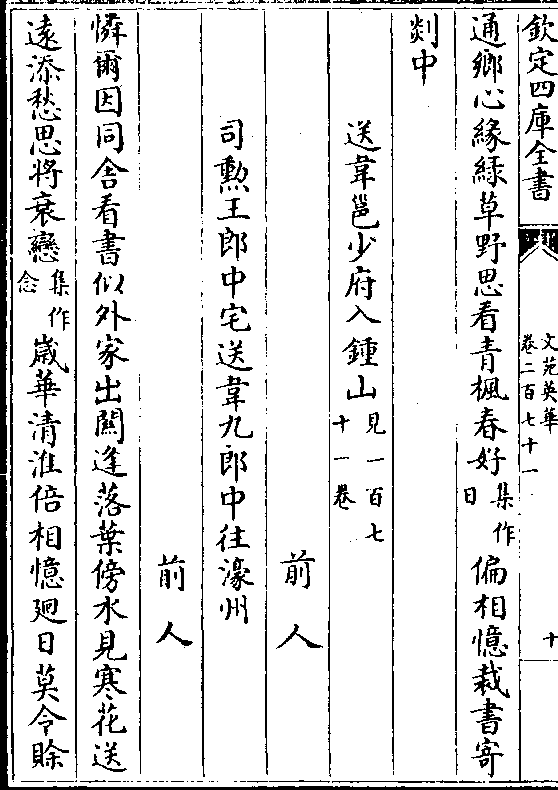 欽定四庫全書
文苑英華
卷二百七十一
十
通鄉心緣綠草野思看青楓春好集作日偏相憶裁書寄
剡中
送韋邕少府入鍾山見一百七十一卷
前人
司勲王郎中宅送韋九郎中往濠州
前人
憐爾因同舍看書似外家出關逢落葉傍水見寒花送
遠添愁思將衰戀集作念嵗華清淮倍相憶廻日莫令賒